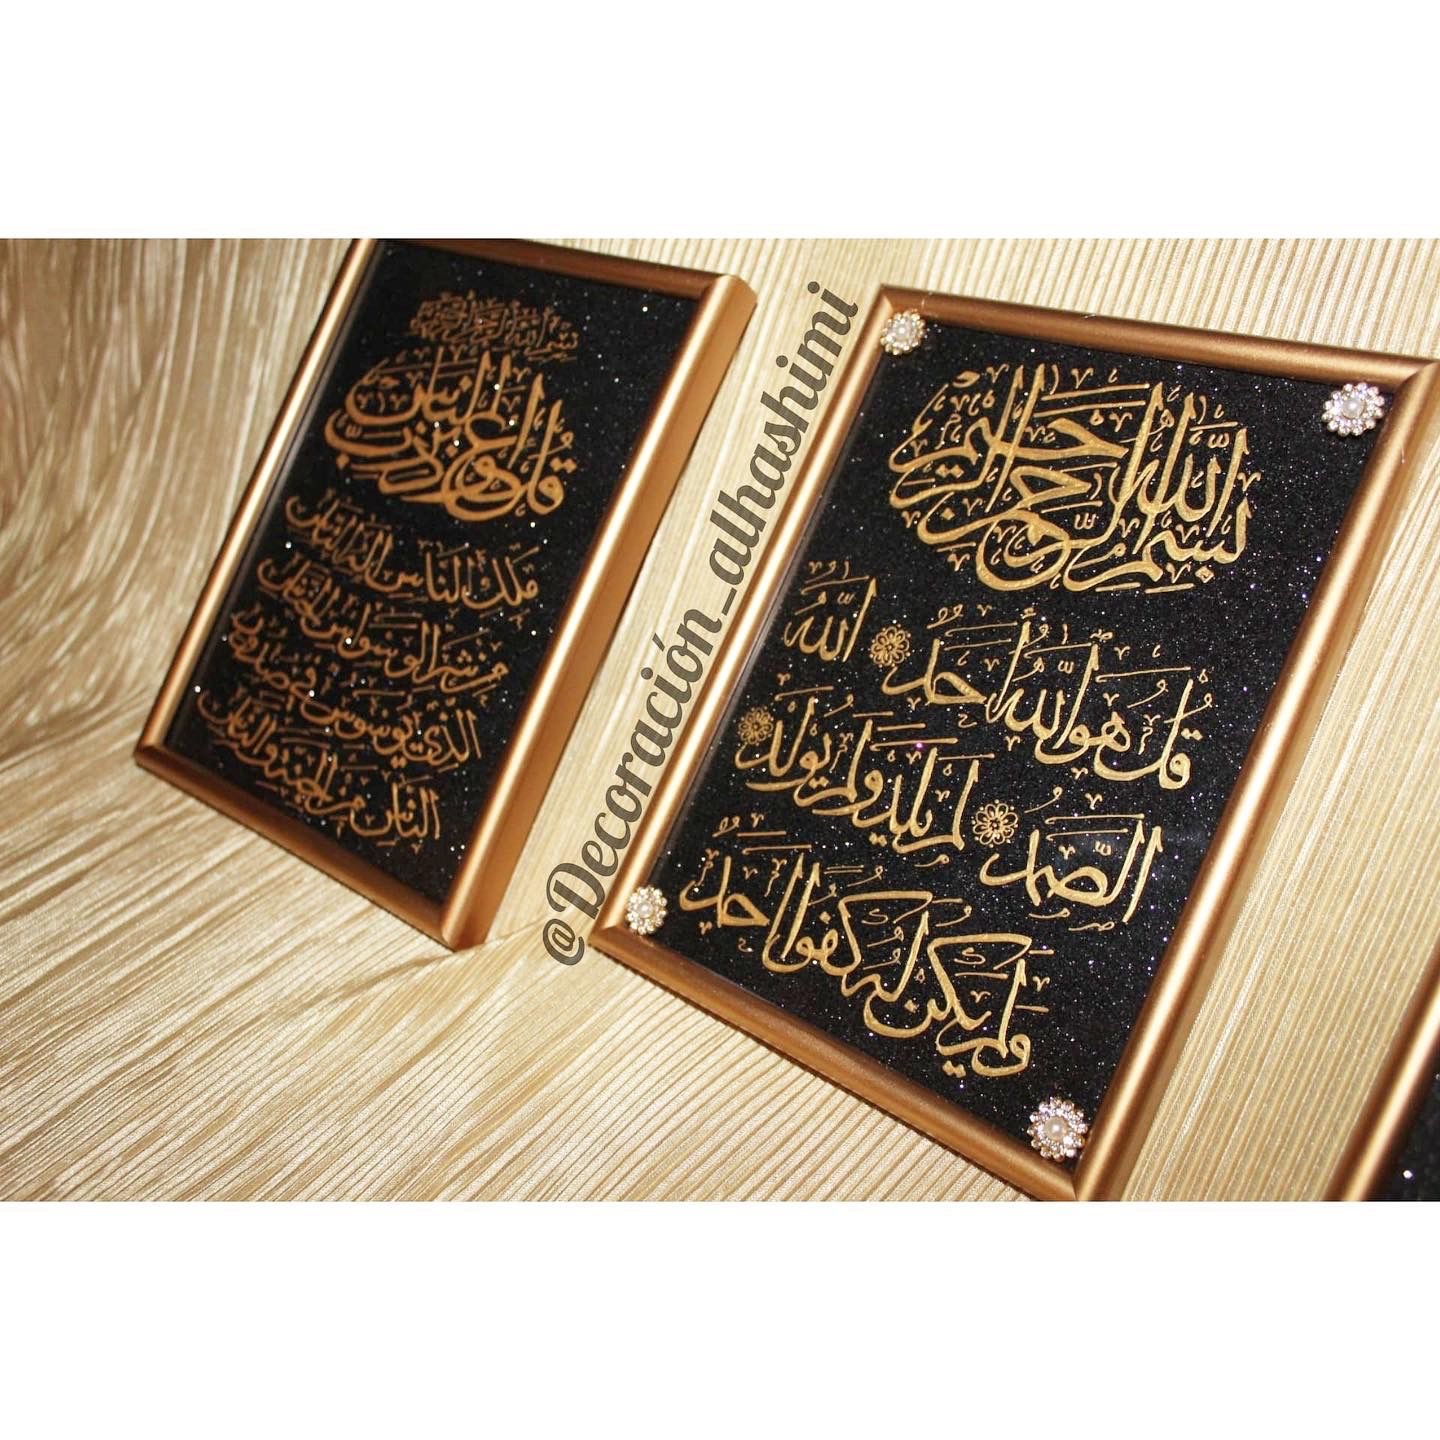 بسم الله الرحمن الرحيم
قل هو الله أحد الله
الصمد لم يلد ولم يولد
ولم يكن له كفوا أحد
@Decoración_alhashimi
بسم الله الرحمن الرحيم
قل أعوذ برب الناس
ملك الناس إله الناس
من شر الوسواس الخناس
الذي يوسوس في صدور
الناس من الجنة والناس